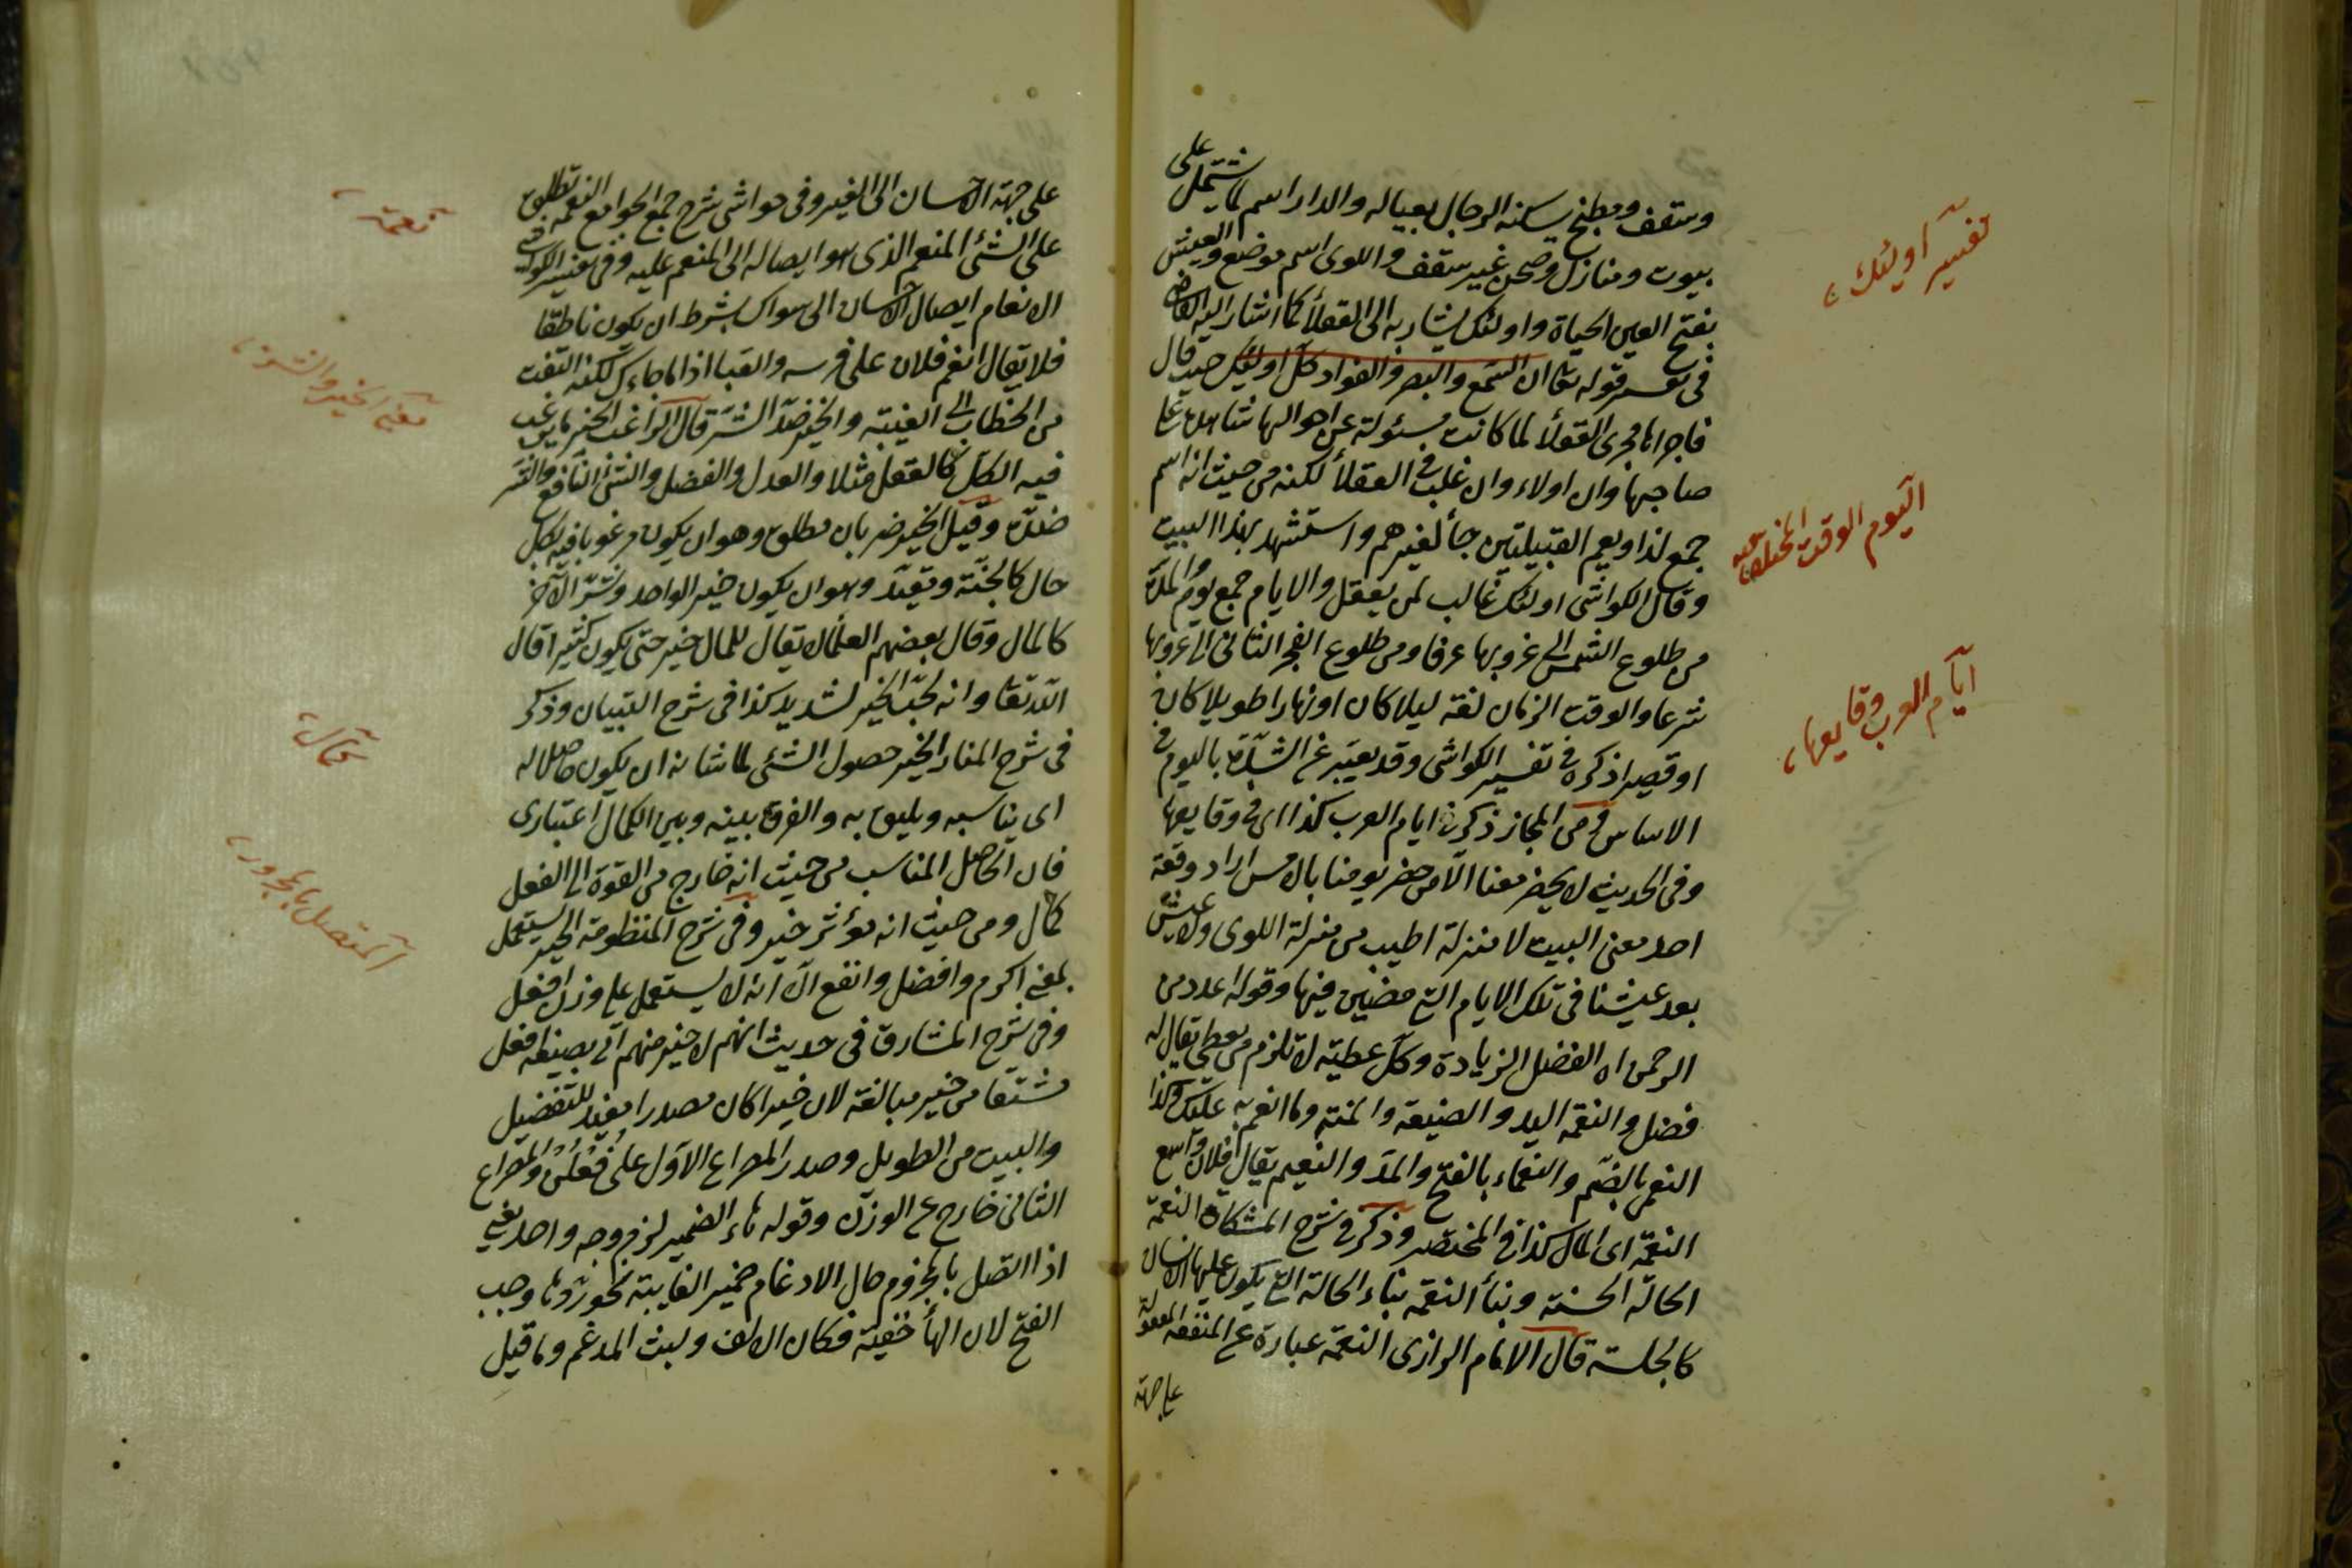 وسقف ومطبخ يسكنه الرجال بعياله والدار اسم لما يشتمل على
بيوت ومنازل وصحن غير سقف واللوى اسم موضع والعيش
بفتح العين الحياة واولئك يشار به الى العقلأ كما اشار اليه القاضى
فى تفسير قوله تعا ان السمع والبصر والفواد كل اولئك حيث قال
فاجراها مجرى العقلأ لما كانت مسئولة عن احوالها شاهدة على
صاحبها وان اولاء وان غلب فى العقلأ لكنه من حيث انه اسم
جمع لذا ويعم القبيلتين جأ لغيرهم واستشهد بهذا البيت
وقال الكواشى اولئك غالب لمن يعقل والايام جمع يوم والمدة
من طلوع الشمس الى غروبها عرفا ومن طلوع الفجر الثانى الى غروبها
شرعا والوقت الزمان لغة ليلا كان او نهارا طويلا كان
او قصيرا ذكره فى تفسير الكواشى وقد يعبر عن الشدة باليوم فى
الاساس ومن المجاز ذكر فى ايام العرب كذا اى فى وقايعها
وفى الحديث لا يحضر معنا الا من حضر يومنا بالامس اراد وقعة
احد معنى البيت لا منزلة اطيب من منزلة اللوى ولا عيش
بعد عيشنا فى تلك الايام التى مضين فيها وقوله عدد من
الرحمن اه الفضل الزيادة وكل عطية لا تلزم من يعطى يقال له
فضل والنعمة اليد والصنيعة والمنة وما انعم به عليك وكذا
النعمى بالضم والنعماء بالفتح والمد والنعيم يقال فلان واسع
النعمة اى المال كذا فى المختصر وذكر فى شرح المشكاة النعمة
الحالة الحسنة وبنأ النعمة بناء الحالة التى يكون عليها الانسان
كالجلسة قال الامام الرازى النعمة عبارة عن المنفعة المفعولة
على جهة
تفسير اولئك
اليوم الوقت
ايام العرب وقايعها
على جهة الاحسان الى الغير وفى حواشى شرح جمع الجوامع النعمة تطلق
على الشئ المنعم الذى هو ايصاله الى المنعم عليه وفى تفسير الكواشى
الانعام ايصال الاحسان الى سواك بشرط ان يكون ناطقا
فلا يقال انعم فلان على فرسه والقبا اذا ما جاءك لكنه التفت
من الخطاب الى الغيبة والخير ضد الشر قال الراغب الخير ما يرغب
فيه الكل كالعقل مثلا والعدل والفضل والشئ النافع والشر
ضده وقيل الخير ضربان مطلق وهو ان يكون مرغوبا فيه بكل
حال كالجنة ومقيد وهو ان يكون خير الواحد وشر الآخر
كالمال وقال بعضهم العلماء لا يقال للمال خير حتى يكون كثيرا قال
الله تعا وانه لحب الخير لشديد كذا فى شرح التبيان وذكر
فى شرح المنار الخير حصول الشئ لما شانه ان يكون حاصلا له
اى يناسبه ويليق به والفرق بينه وبين الكمال اعتبارى
فان الحاصل المناسب من حيث انه خارج من القوة الى الفعل
كمال ومن حيث انه مؤثر خير وفى شرح المنظومة الخير يستعمل
بمعنى اكرم وافضل وانفع الا انه لا يستعمل على وزن افعل
وفى شرح المشارق فى حديث انهم لاخير منهم اتى بصيغة افعل
مشتقا من خير مبالغة لان خيرا كان مصدرا مفيد للتفضيل
والبيت من الطويل وصدر المصراع الاول على فعلن والمصراع
الثانى خارج عن الوزن وقوله هاء الضمير لزم وجه واحد يعنى
اذا اتصل بالمجزوم حال الادغام ضمير الغايبة نحو ردها وجب
الفتح لان الهأ خفية فكان الالف وليت المدغم وما قبل
نعمة
معنى الخير والشر
كمال
المتصل بالمجزور